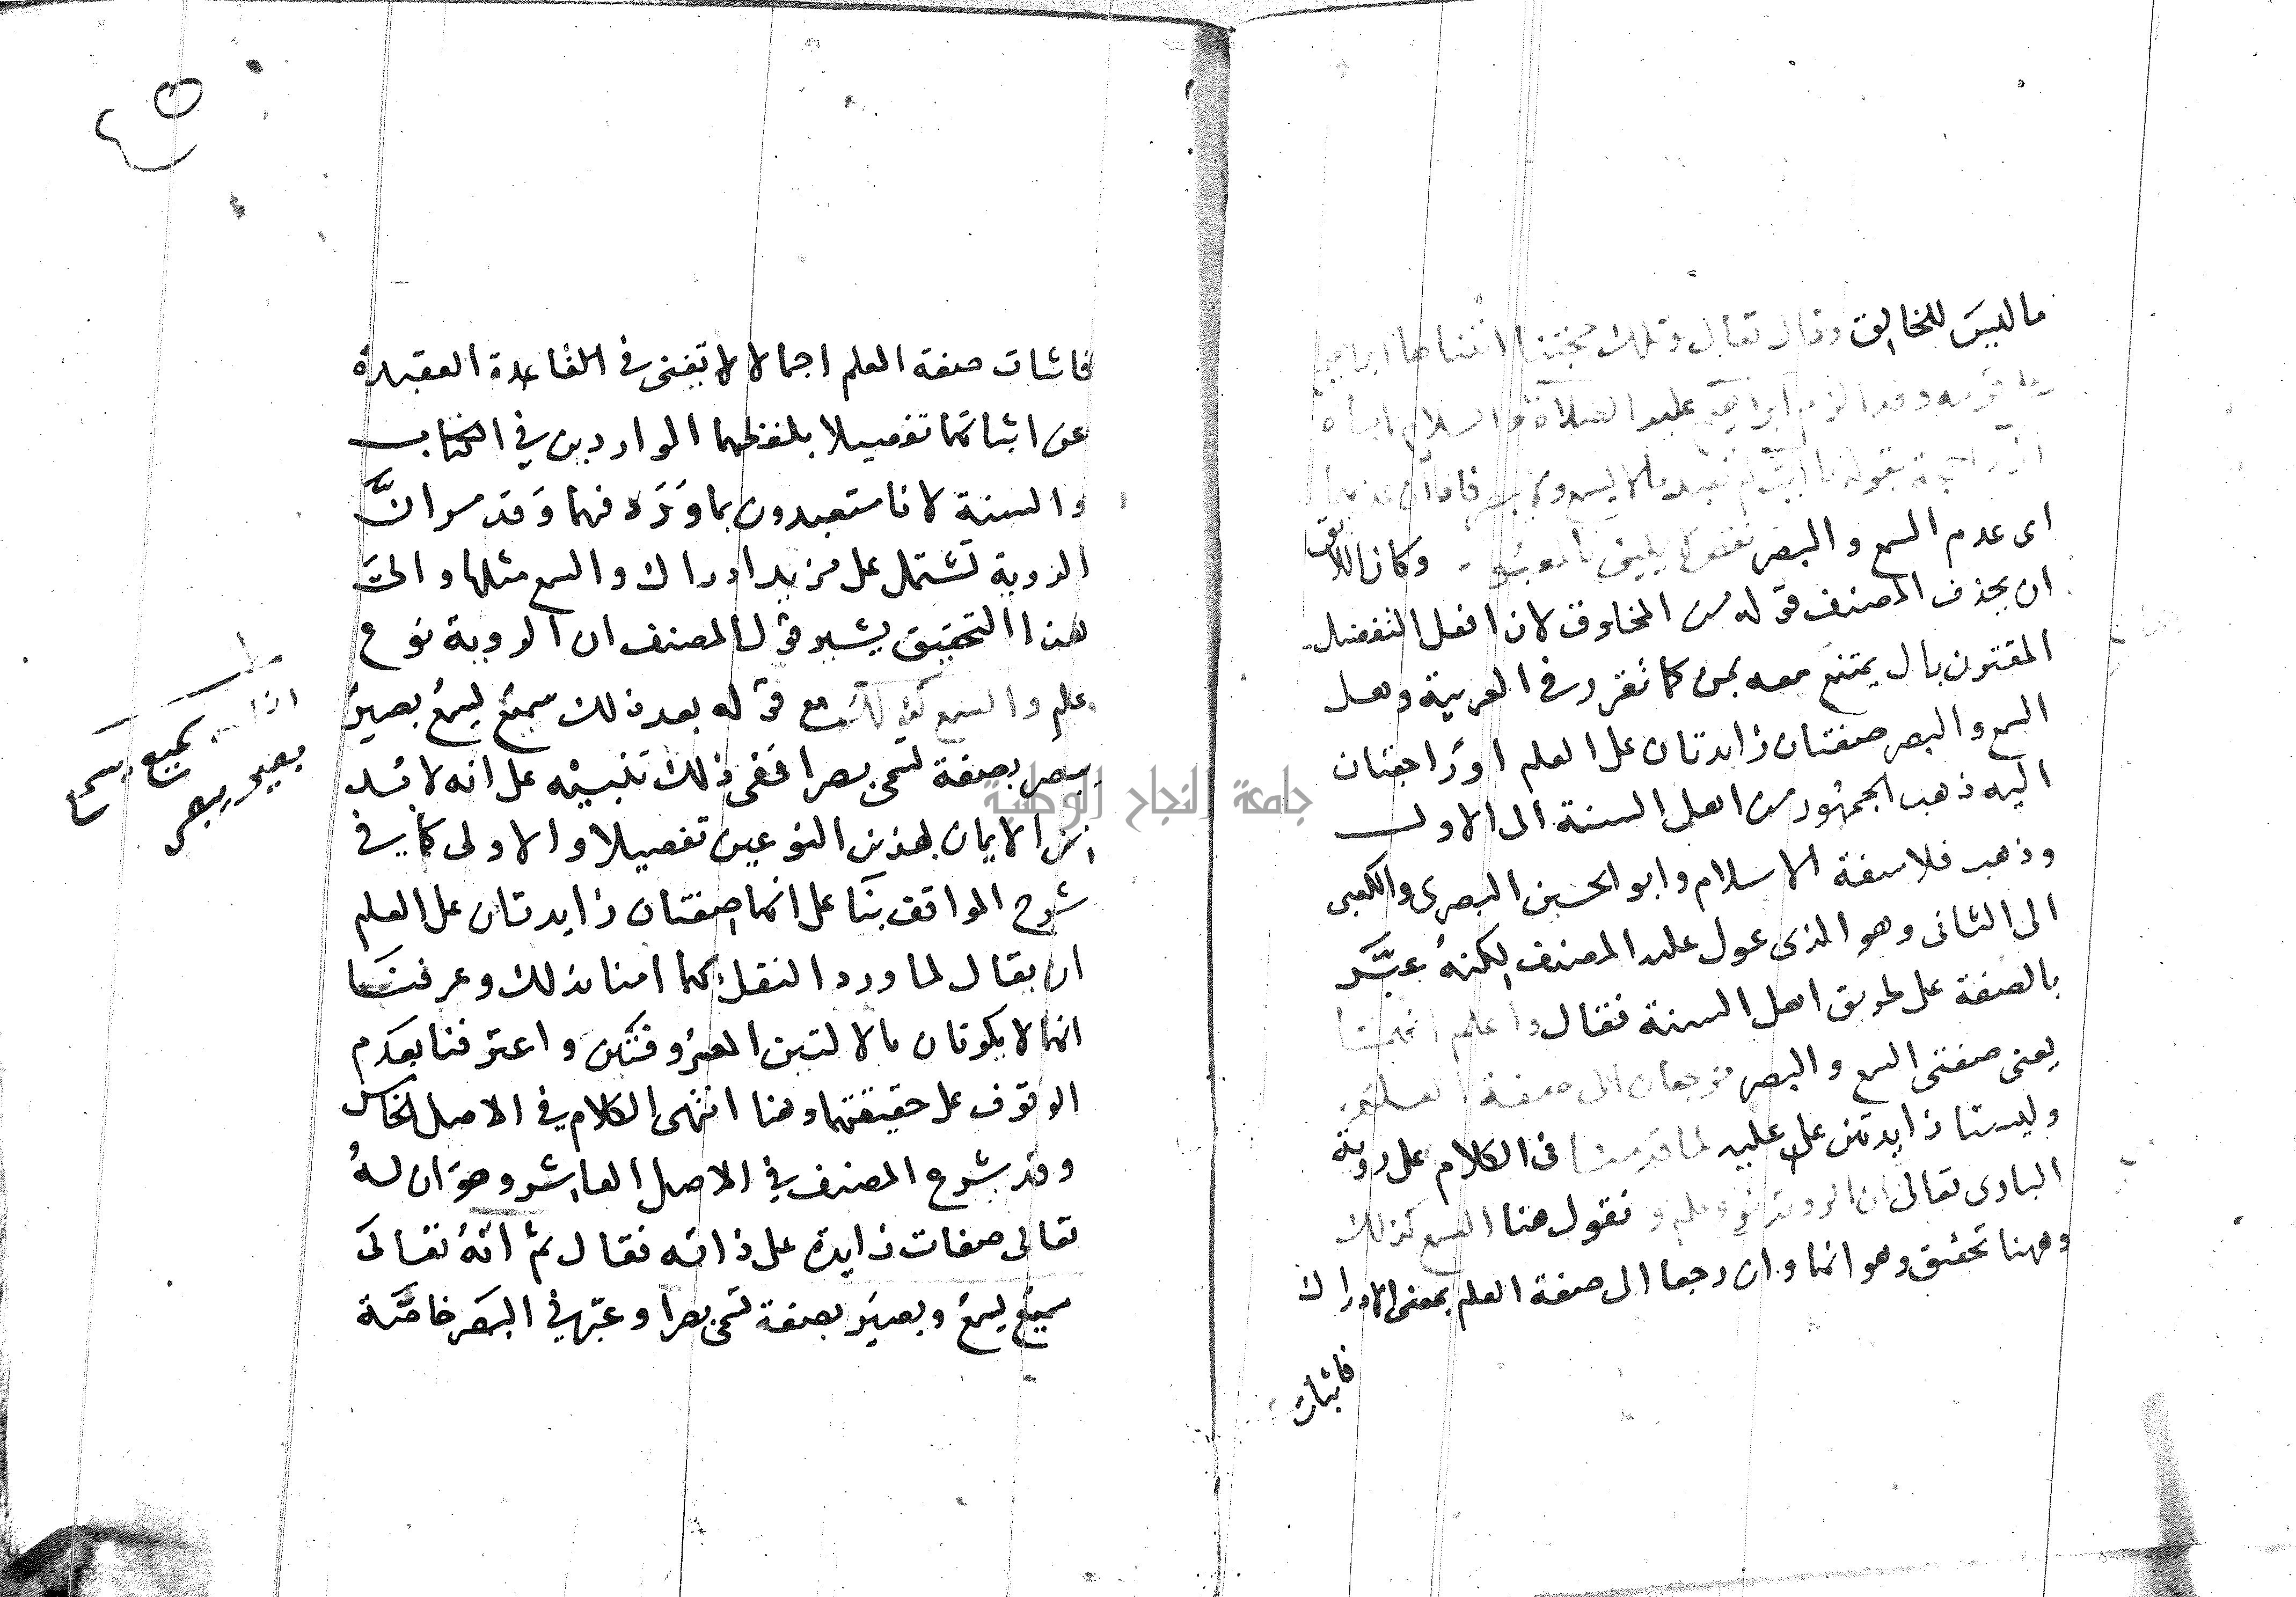 ما ليس للخالق وقال تعالى وتلك حجتنا اتيناها ابراهيم
على قومه وقد الزم ابراهيم عليه الصلاة والسلام اباه
الحجة بقوله يا ابت لم تعبد ما لا يسمع ولا يبصر فافاد ان عدمهما
اى عدم السمع والبصر نقص لا يليق بالمعبود وكان اللائق
ان يحذف المصنف قوله من المخلوق لان افعل التفضيل
المقترن بال يمتنع معه بمن كما تقرر فى العربية وهل
السمع والبصر صفتان زايدتان على العلم او راجعتان
اليه ذهب الجمهور من اهل السنة الى الاول
وذهب فلاسفة الاسلام وابو الحسين البصرى والكعبى
الى الثانى وهو الذى عول عليه المصنف لكنه عبَّر
بالصفة على طريق اهل السنة فقال واعلم انهما
يعنى صفتى السمع والبصر مرجعان الى صفة العلم
وليستا زايدتين على عليه لما قدمنا فى الكلام على روية
البارى تعالى ان الروية نوع علم ونقول هنا السمع كذلك
وههنا تحقيق وهو انهما وان رجعا الى صفة العلم بمعنى الادراك
فاثبات
فاثبات صفة العلم اجمالا لا تغنى فى القاعدة العقيدة
عن اثباتهما تفصيلا بلفظهما الواردين في الكتاب
والسنة لانا متعبدون بما وَرَد فيهما وَقد مر انَّ
الروية تشتمل على مزيد ادراك والسمع مثلها والى
هذا التحقيق يشير قول المصنف ان الروية نوع
علم والسمع كذلك مع قوله بعد ذلك سميعٌ بسمعٍ بصيرٌ
ببصر بصفة تسمى بصرا ففى ذلك تنبيه على انه لا بُد
من الايمان بهذين النوعين تفصيلا والاولى كما في
شرح المواقف بنا على انهما صفتان زايدتان على العلم
ان يقال لما ورد النقل بهما امنا بذلك وعرفنا
انهما لا يكونان بالالتين المعروفتين واعترفنا بعدم
الوقوف على حقيقتهما وهنا انتهى الكلام في الاصل الخامس
وقد شرع المصنف في الاصل العاشر وهوَ ان لهُ
تعالى صفات زايدة على ذاته فقال ثم انهُ تعالَى
سميعٌ بسمعٍ وبصيرٌ بصفة تسمى بصرا وعبّر في البَصَر خاصَّة
سميع بسمع
بصير ببصر
جامعة النجاح الوطنية